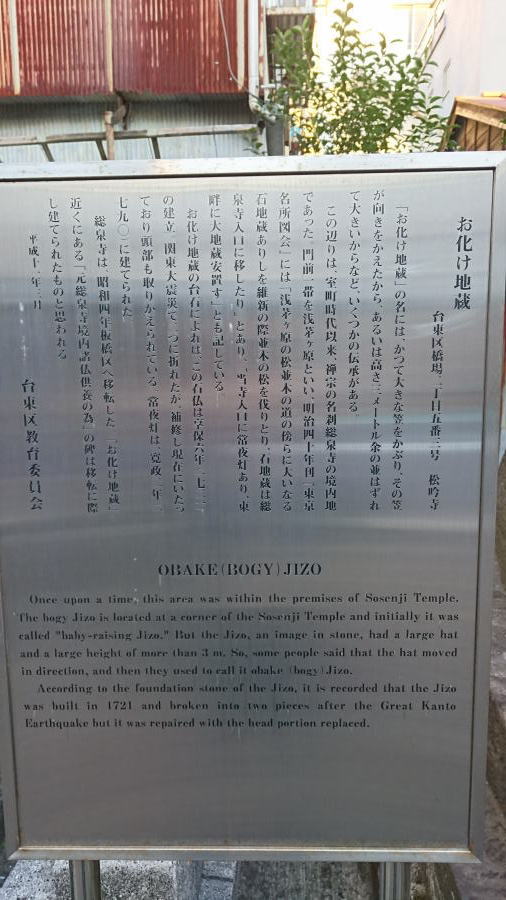 お化け地蔵
台東区橋場二丁目五番三号　松吟寺
「お化け地蔵」の名には、かつて大きな笠をかぶり、その笠
が向きをかえたから、あるいは高さ三メートル余の並はずれ
て大きいからなど、いくつかの伝承がある。
この辺りは、室町時代以来、禅宗の名刹総泉寺の境内地
であった。門前一帯を浅茅ヶ原といい、明治四十年刊『東京
名所図会』には「浅茅ヶ原の松並木の道の傍らに大いなる
石地蔵ありしを維新の際並木の松を伐りとり、石地蔵は総
泉寺入口に移したり」とあり、「当寺入口に常夜灯あり、東
畔に大地蔵安置す」とも記している。
お化け地蔵の台石によれば、この石仏は享保六年(一七二一)
の建立。関東大震災で二つに折れたが、補修し現在にいたっ
ており頭部も取りかえられている。常夜灯は、寛政二年(一
七九〇)に建てられた。
総泉寺は、昭和四年板橋区へ移転した。「お化け地蔵」
近くにある「元総泉寺境内諸仏供養の為」の碑は移転に際
し建てられたものと思われる
平成十一年三月
台東区教育委員会
OBAKE (BOGY) JIZO
Once upon a time, this area was within the premises of Sosenji Temple.
The bogy Jizo is located at a corner of the Sosenji Temple and initially it was
called "baby-raising Jizo." But the Jizo, an image in stone, had a large hat
and a large height of more than 3 m. So, some people said that the hat moved
in direction, and then they used to call it obake (bogy) Jizo.
According to the foundation stone of the Jizo, it is recorded that the Jizo
was built in 1721 and broken into two pieces after the Great Kanto
Earthquake but it was repaired with the head portion replaced.